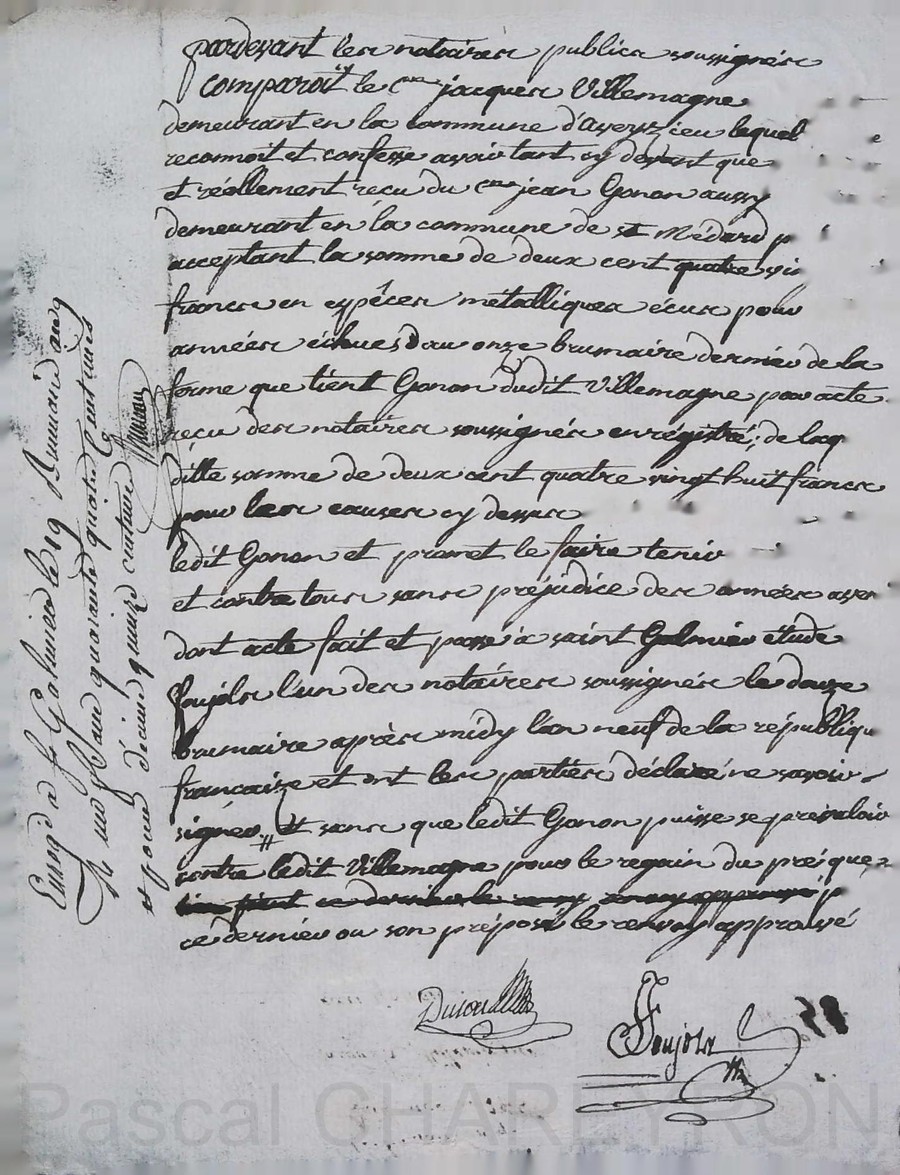 pardevant les notaires publics soussignés
comparoit le c.en jacques Villemagne
demeurant en la commune d'aveyzieu lequel
reconnoit et confesse avoir tant cy devant que
et réellement reçu du c.en jean Gonon aussy
demeurant en la commune de st Médard p
acceptant la somme de deux cent quatre vin
francs en espêces métalliques écus pour
années échues au onze brumaire dernier de la
ferme que tient Gonon dudit Villemagne par acte
reçu des notaires soussignés enrégistré, de laq
ditte somme de deux cent quatre vingt huit francs
pour les causes cy dessus
ledit Gonon et promet le faire tenir
et contre tous sans préjudice des années
dont acte fait et passé à saint Galmier étude
foujols l'un des notaires soussignés le douze
brumaire après midy l'an neuf de la républiqu
française et ont les parties déclaré ne savoir
signer # Et sans que ledit Gonon puisse se prévaloir
contre ledit Villemagne pour le regain du pré que
ce dernier le
ce dernier ou son préposé le renvoy approuvé
Foujols
Enreg à St Galmier le 19 Brumaire an 9
quarante quatre
et pour décime quinze centimes
Pascal CHAREYRON